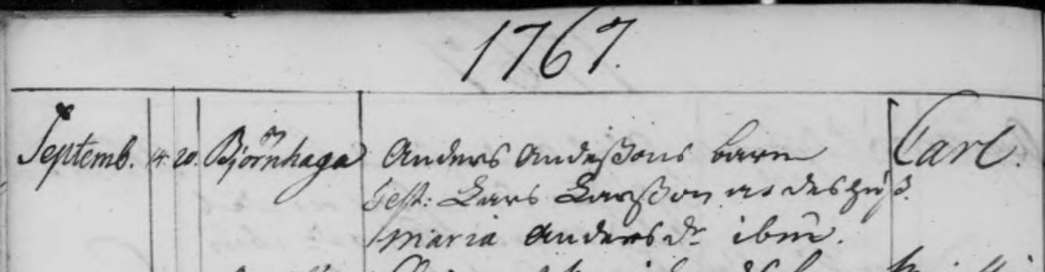 1767.
Septemb. 14. 20. Björnhaga Anders Andeßons barn Carl.
Test: Lars Larßon
Maria Anders dr ibm.